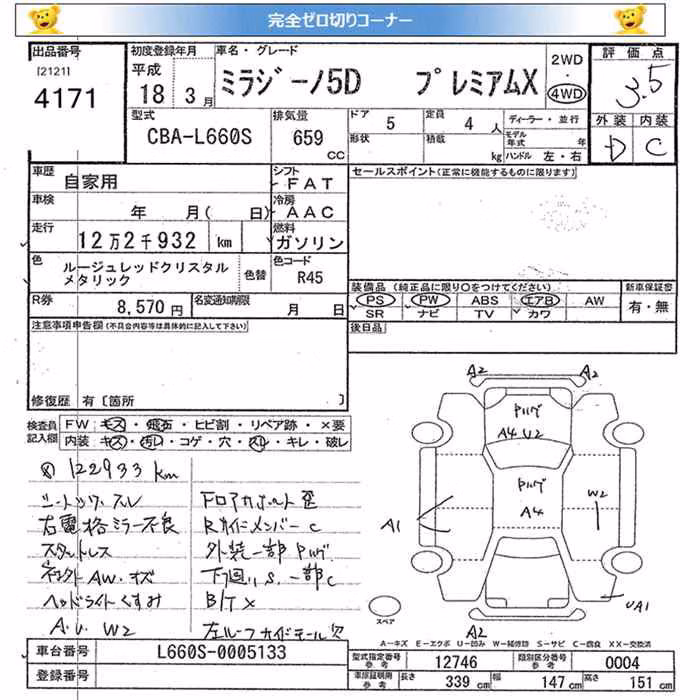 完全ゼロ切りコーナー
出品番号
[2121]
4171
初度登録年月
平成
18 3月
車名・グレード
ミラジーノ5D プレミアムX
2WD
・
4WD
評価点
3.5
外装 内装
D C
型式
CBA-L660S
排気量
659
cc
ドア 5
定員 4 人
形状
積載 kg
ディーラー・並行
モデル年式 年
ハンドル 左・右
車歴
自家用
シフト
FAT
車検
年 月( 日)
冷房
AAC
走行
12万2千932 km
燃料
ガソリン
色
ルージュレッドクリスタル
メタリック
色替
色コード
R45
R券
8,570円
名変通知期限
月 日
セールスポイント(正常に機能するものに限ります)
装備品 (純正品に限り○をつけてください)
PS PW ABS エアB AW
SR ナビ TV カワ
新車保証書
有・無
後日品
注意事項申告欄(不具合内容等は具体的に記入して下さい)
修復歴 有〔箇所 〕
検査員
記入欄
FW:キズ・飛石・ヒビ割・リペア跡・×要
内装:キズ・汚れ・コゲ・穴・スレ・キレ・破レ
122933 km
シートツツ.スレ
右電格ミラー不良
スタットレス
ネキスト AW.キズ
ヘッドライトくすみ
A.U. W2
Fロアサポート歪
Rサイドメンバー C
外装一部Pハゲ
下回りS.一部C
B/T×
左ルーフガイドモール欠
A2
A2
Pハゲ
A4 U2
Pハゲ
A4
A1
W2
UA1
A2
スペア
A-キズ E-エクボ U-凹み W-補修跡 S-サビ C-腐食 XX-交換済
車台番号
L660S-0005133
登録番号
型式指定番号
参考
12746
類別区分番号
参考
0004
車庫証明用
参考
長さ 339 cm
幅 147 cm
高さ 151 cm